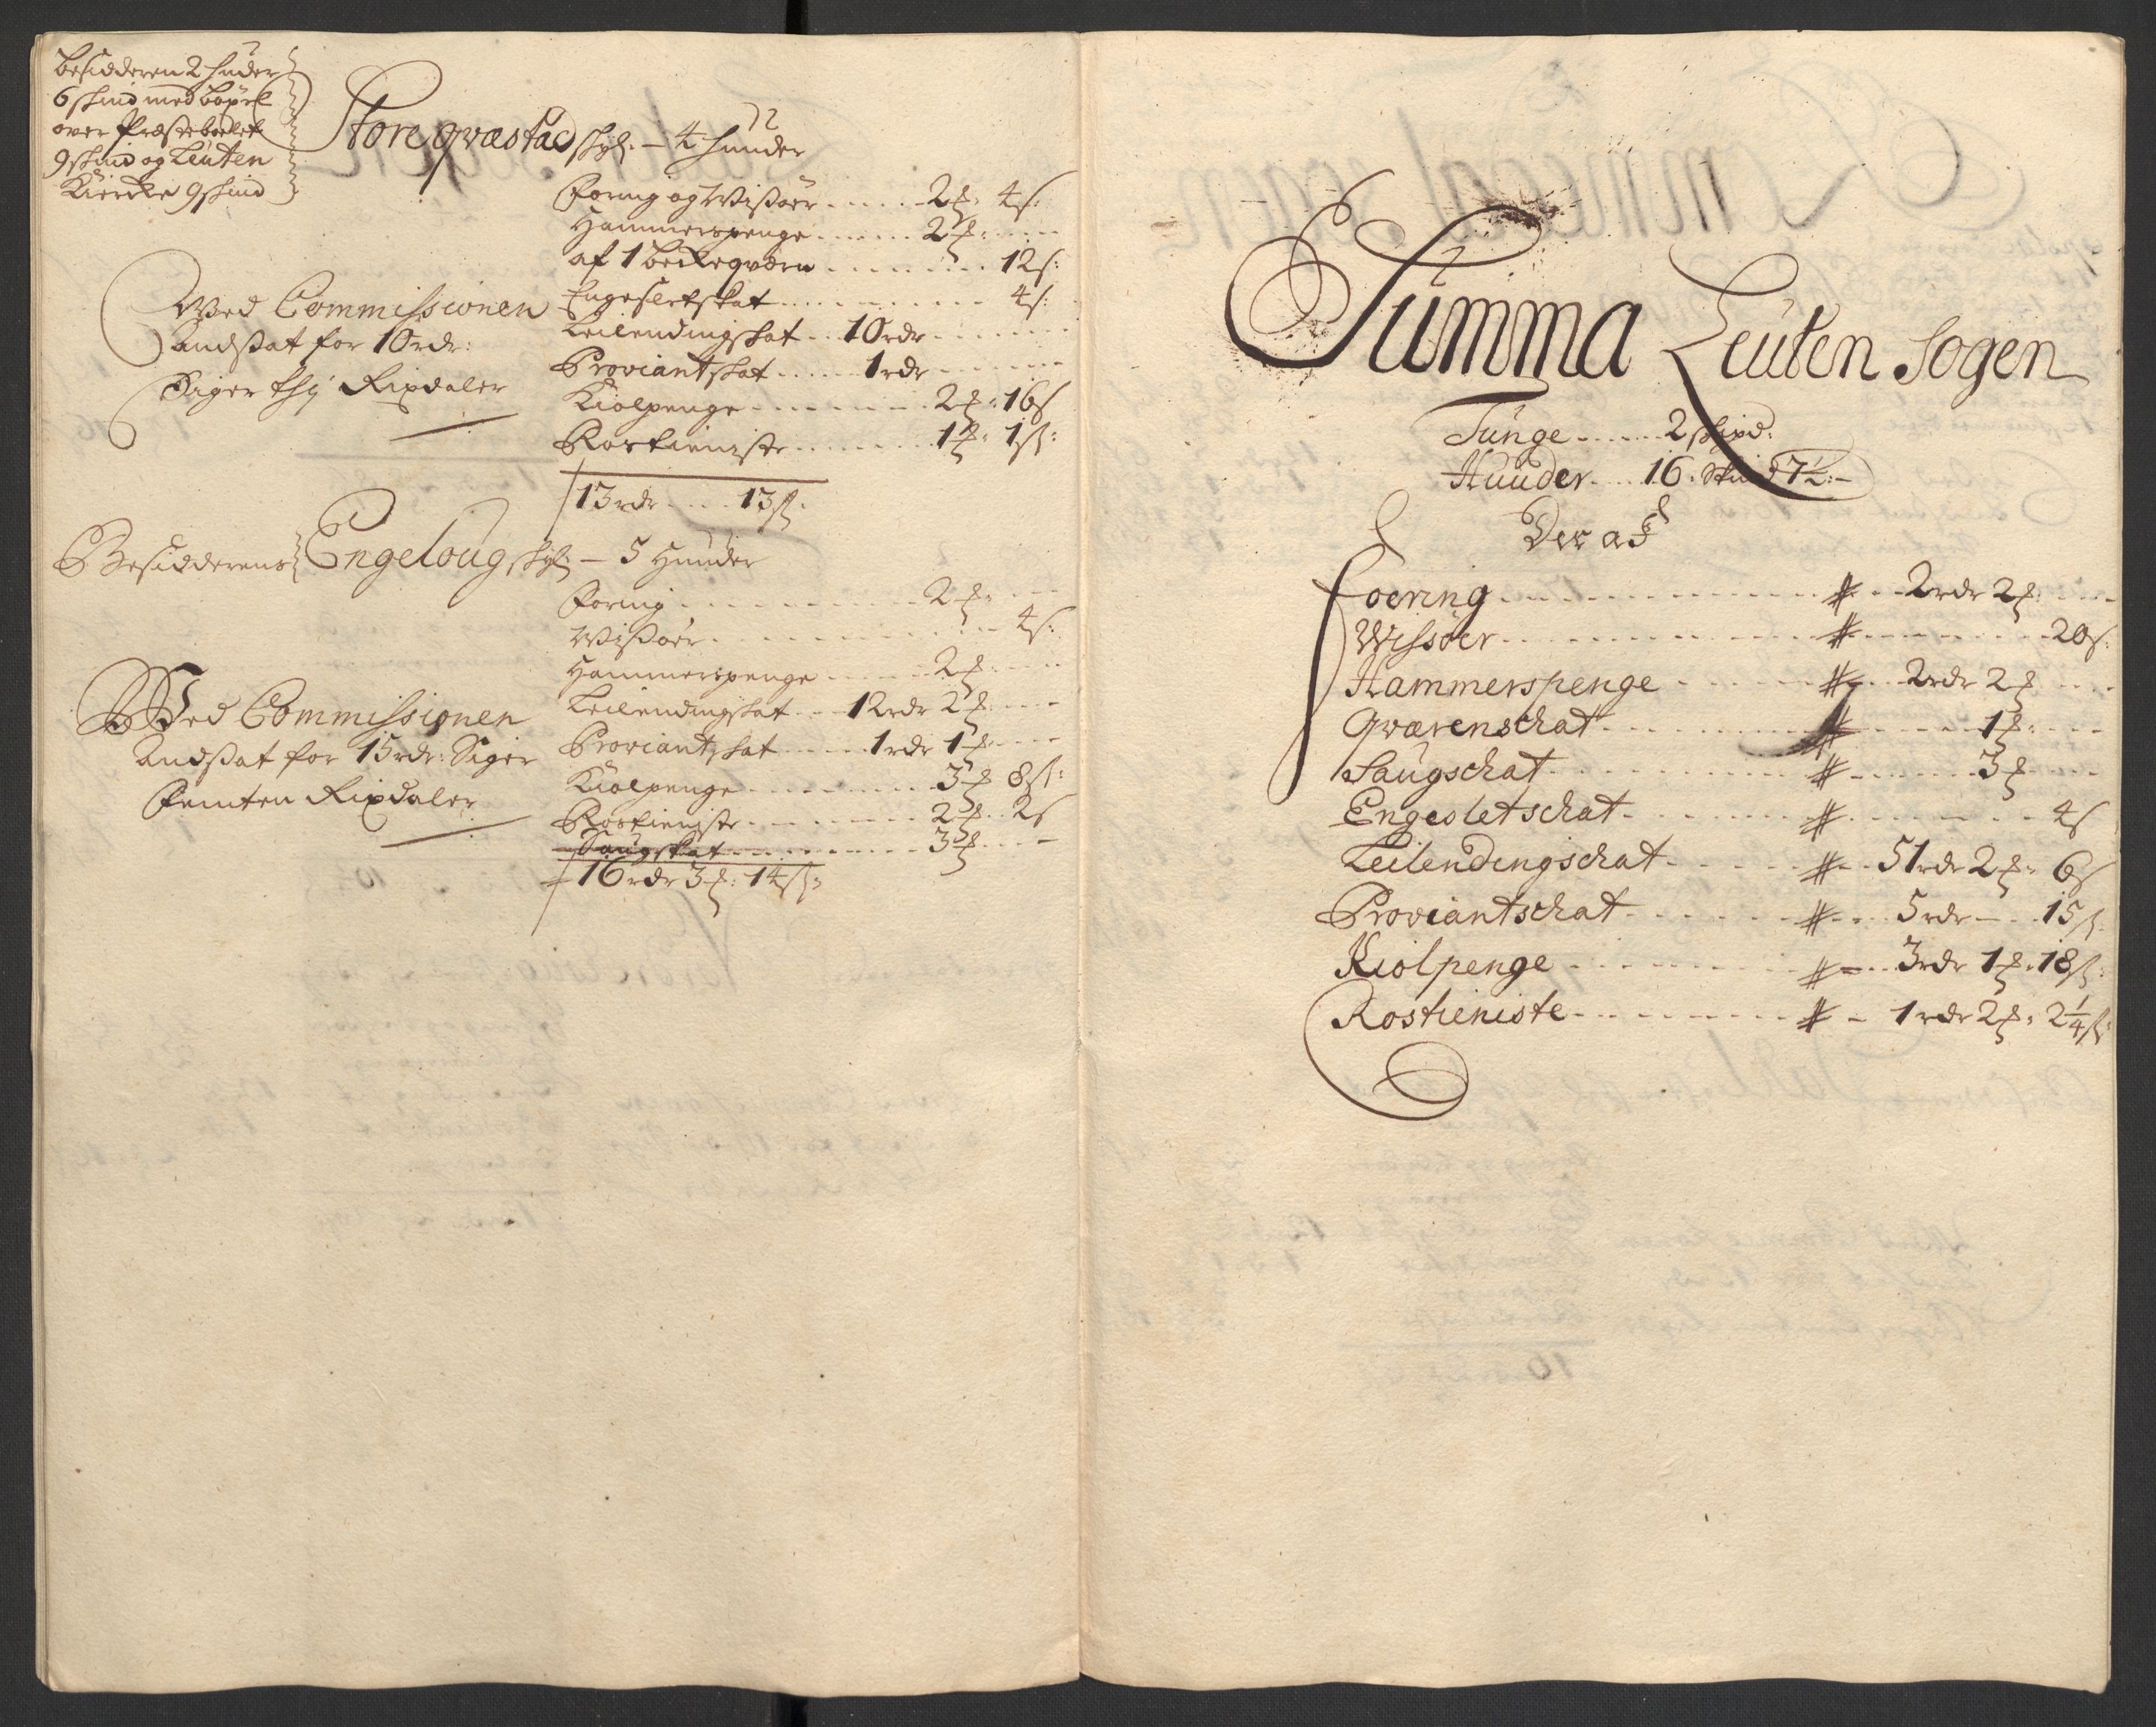 Besidderen 2 huder
6 skind med böxel
over Præsteboelet
9 skind og Leuten
Kiercke 9 skind
Store qvæstad skyl: – 4 huuder
Foring og Wissöer 2 4 s:
Hammerspenge 2
af 1 beckeqværn 12 s:
Engesletskat 4 s:
Leilendingskat 10 rdr
Proviantskat 1 rdr
Kiolpenge 2 16 s
Rostieniste 1 1 s:
13 rdr 13 s:
Wed Commissionen
andsat for 10 rdr:
Siger thj Rixdaler
Besidderens Engeloug skyl: – 5 Huuder
Foring 2
Wissöer 4 s:
Hammerspenge 2
Leilendingskat 12 rdr 2
Proviantskat 1 rdr 1
Kiolpenge 3 8 s:
Rostieniste 2 2 s
Saugskat 3
16 rdr 3 : 14 s:
Wed Commissionen
Andsat for 15 rdr: Siger
Femten Rixdaler
Summa Leuten Sogen
Tunge 2 skipd:
Huuder 16. Skind 7½:–
Der af
Foering 2 rdr 2
Wissöer 20 s:
Hammerspenge 2 rdr 2
Qværenschat 1
Saugschat 3
Engesletschat 4 s
Leilendingschat 51 rdr 2 6 s
Proviantschat 5 rdr – 15 s:
Kiolpenge 3 rdr 1 18 s:
Rostieniste 1 rdr 2 2¼ s: